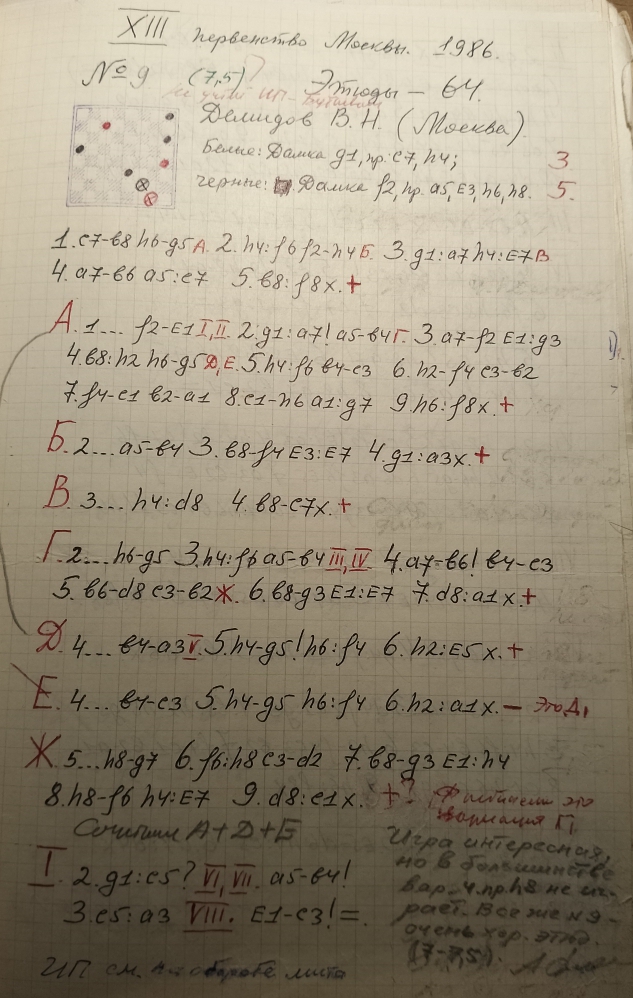 XIII первенство Москвы. 1986.
№ 9 (7,5)? Этюды – 64.
Демидов В.Н. (Москва).
Белые: Дамка g1, пр. c7, h4; 3
Черные: Дамка f2, пр. a5, E3, h6, h8. 5.
1. c7-в8 h6-g5 А. 2. h4:f6 f2-h4 Б. 3. g1:a7 h4:E7 В
4. a7-в6 a5:c7 5. в8:f8x.+
А. 1... f2-E1 I, II. 2. g1:a7! a5-в4 Г. 3. a7-f2 E1:g3
4. в8:h2 h6-g5 Д, Е. 5. h4:f6 в4-c3 6. h2-f4 c3-в2
7. f4-c1 в2-a1 8. c1-h6 a1:g7 9. h6:f8x.+
Б. 2... a5-в4 3. в8-f4 E3:E7 4. g1:a3x.+
В. 3... h4:d8 4. в8-c7x.+
Г. 2... h6-g5 3. h4:f6 a5-в4 III, IV. 4. a7-в6! в4-c3
5. в6-d8 c3-в2 Ж. 6. в8-g3 E1:E7 7. d8:a1x.+
Д. 4... в4-a3 V. 5. h4-g5! h6:f4 6. h2:E5x.+
Е. 4... в4-c3 5. h4-g5 h6:f4 6. h2:a1x. – это Д1
Ж 5... h8-g7 6. f6:h8 c3-d2 7. в8-g3 E1:h4
8. h8-f6 h4:E7 9. d8:c1x. +? это
вариация Г1
Сочтим А+Д+Е
Игра интересная,
но в большинстве
вар. ч. пр. h8 не иг-
рает. Все же
очень хор. этюд.
(7-7,5).
I. 2. g1:c5? VI, VII. a5-в4!
3. c5:a3 VIII. E1-c3! =.
ИП см. на обороте листа